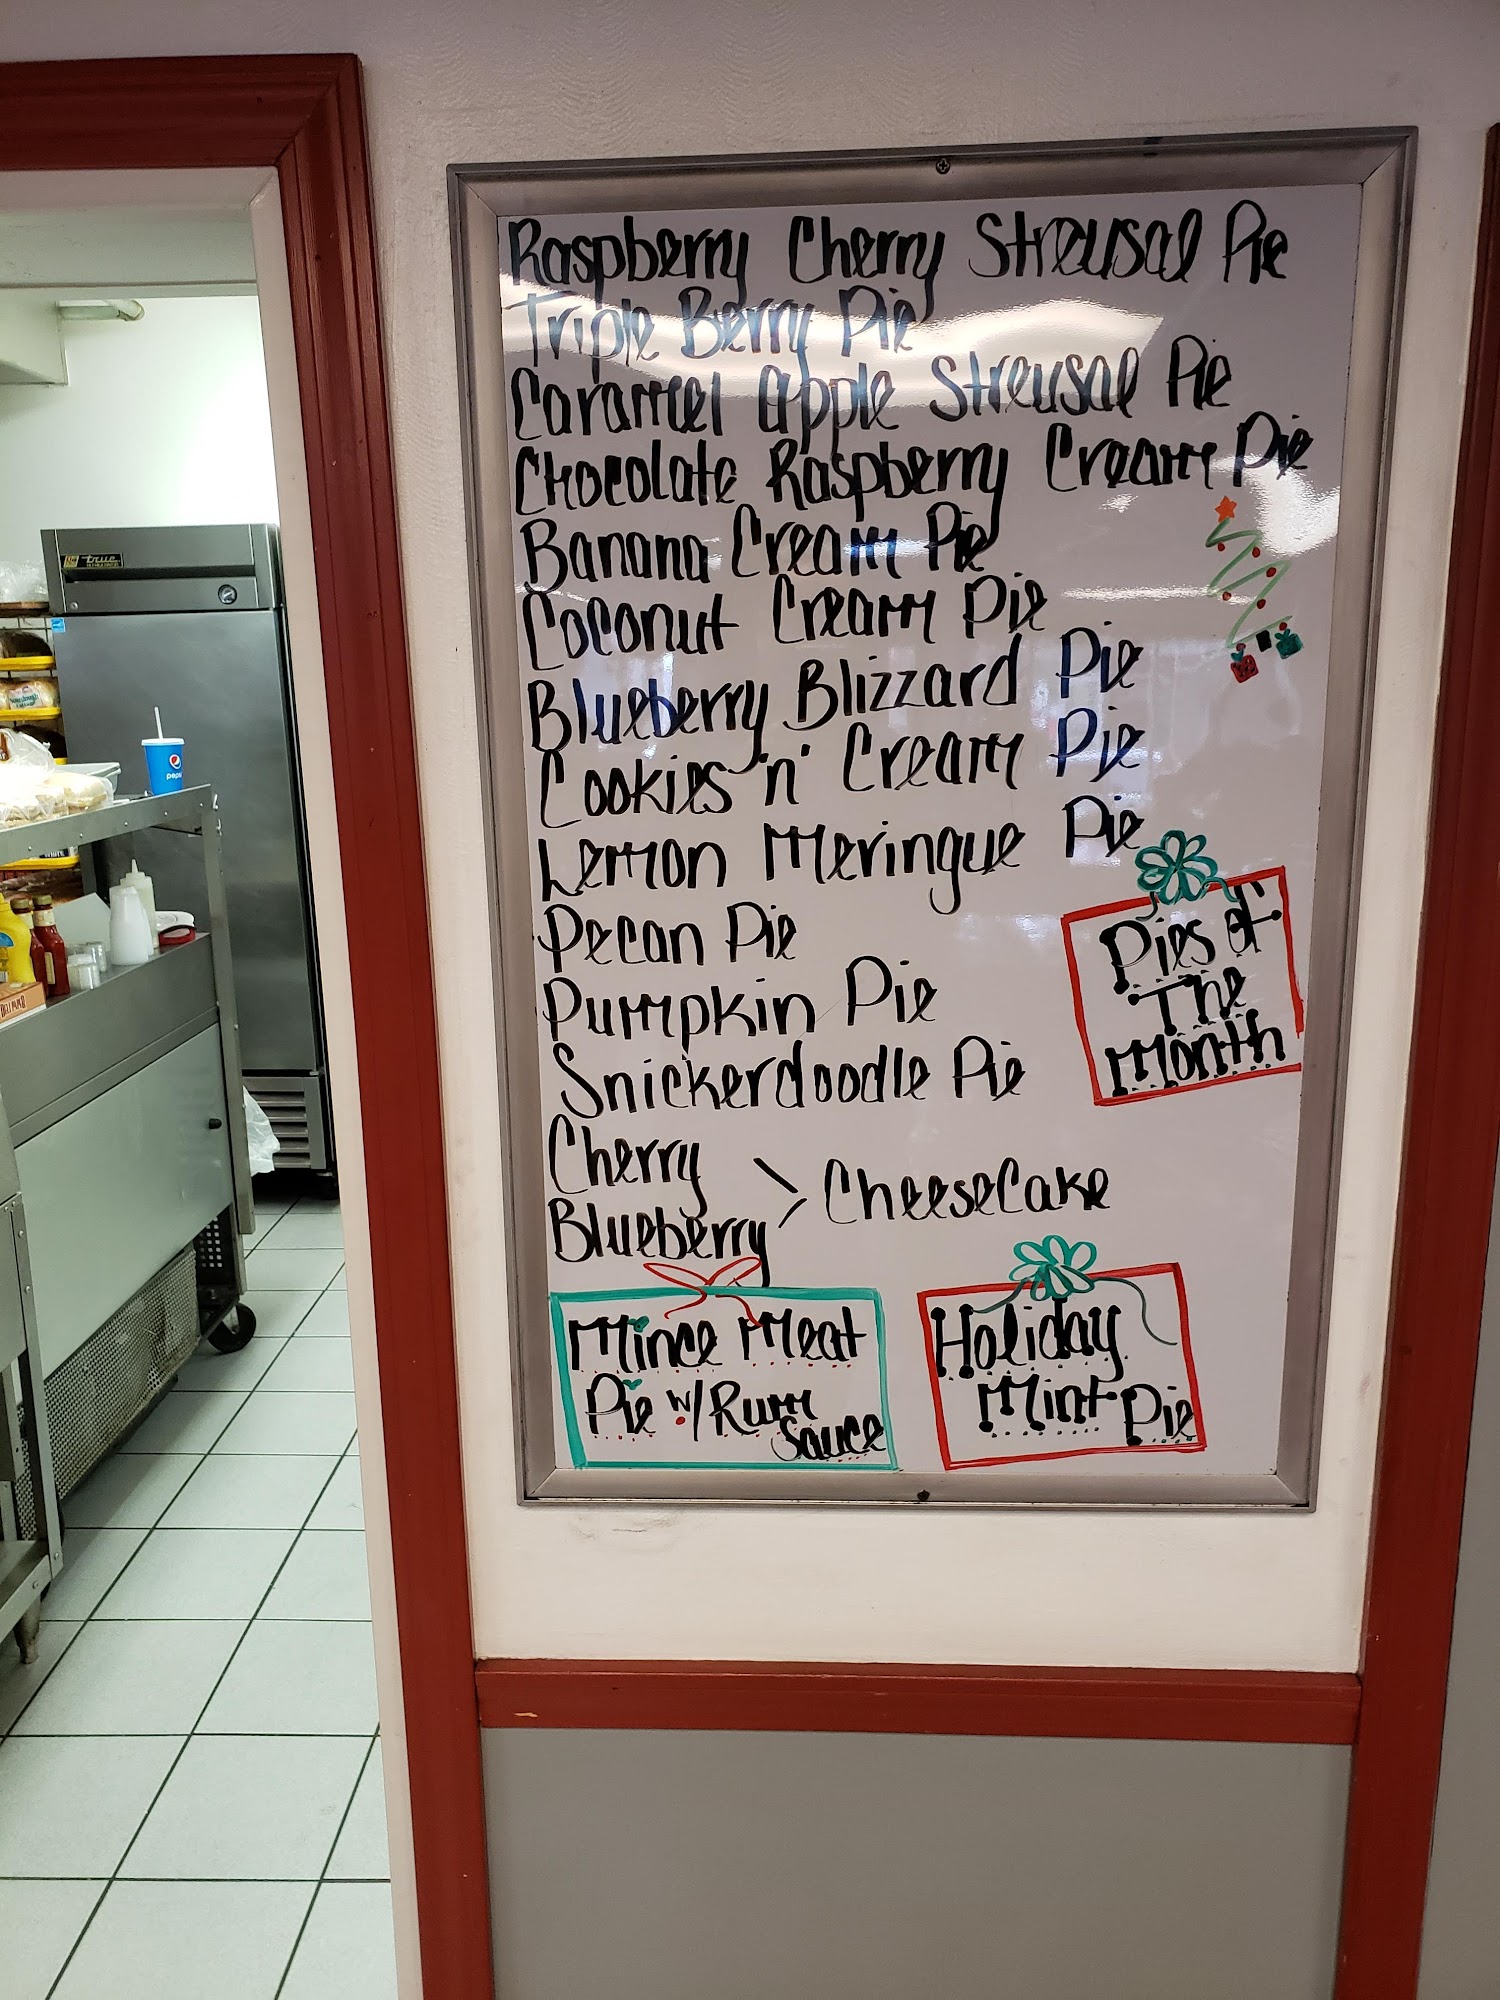 Raspberry Cherry Streusal Pie
Triple Berry Pie
Caramel Apple Streusal Pie
Chocolate Raspberry Cream Pie
Banana Cream Pie
Coconut Cream Pie
Blueberry Blizzard Pie
Cookies 'n' Cream Pie
Lemon Meringue Pie
Pecan Pie
Pumpkin Pie
Snickerdoodle Pie
Cherry
Blueberry > CheeseCake
Pies of
The
Month
Mince Meat
Pie w/ Rum
Sauce
Holiday
Mint Pie
true
pepsi